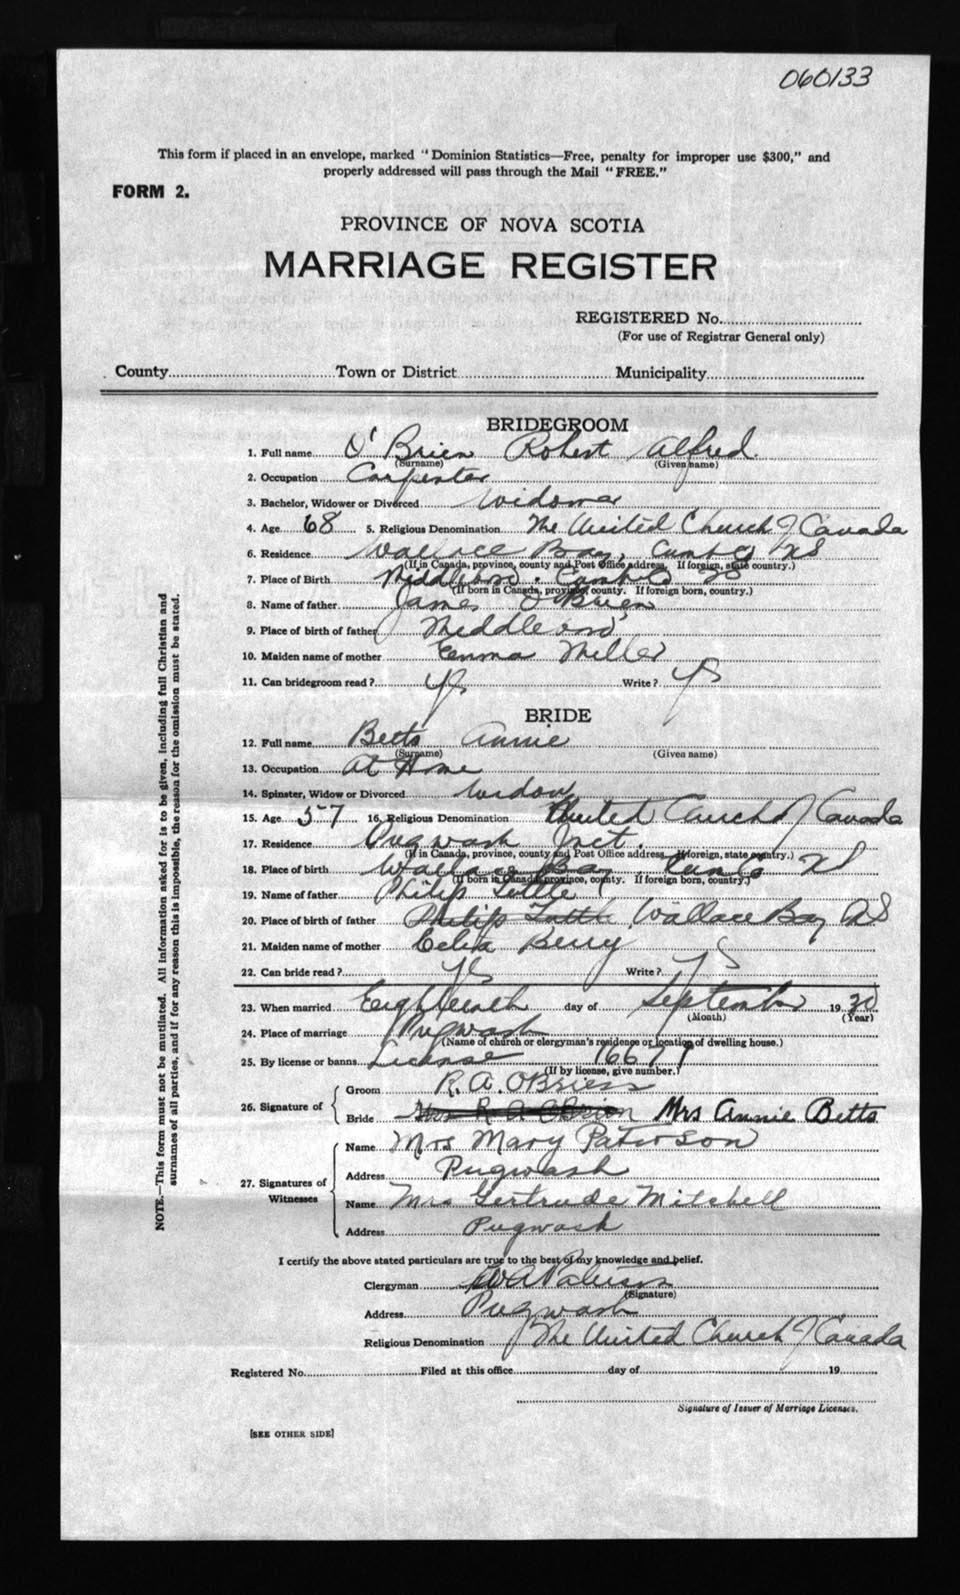 060133
This form if placed in an envelope, marked "Dominion Statistics—Free, penalty for improper use $300," and
properly addressed will pass through the Mail "FREE."
FORM 2.
PROVINCE OF NOVA SCOTIA
MARRIAGE REGISTER
REGISTERED No.
(For use of Registrar General only)
County Town or District Municipality
BRIDEGROOM
1. Full name O'Brien Robert Alfred
(Surname) (Given name)
2. Occupation Carpenter
3. Bachelor, Widower or Divorced Widower
4. Age 68 5. Religious Denomination The United Church of Canada
6. Residence Wallace Bay, Cumb Co NS
(If in Canada, province, county and Post Office address. If foreign, state country.)
7. Place of Birth Middleboro. Cumb Co NS
(If born in Canada, province, county. If foreign born, country.)
8. Name of father James O'Brien
9. Place of birth of father Middleboro
10. Maiden name of mother Emma Miller
11. Can bridegroom read? Yes Write? Yes
BRIDE
12. Full name Betts Annie
(Surname) (Given name)
13. Occupation At Home
14. Spinster, Widow or Divorced Widow
15. Age 57 16. Religious Denomination United Church of Canada
17. Residence Pugwash Jnct.
(If in Canada, province, county and Post Office address. If foreign, state country.)
18. Place of birth Wallace Bay Cumb Co NS
(If born in Canada, province, county. If foreign born, country.)
19. Name of father Philip Tuttle
20. Place of birth of father Philip Tuttle Wallace Bay NS
21. Maiden name of mother Celia Berry
22. Can bride read? Yes Write? Yes
23. When married Eighteenth day of September 1930
(Month) (Year)
24. Place of marriage Pugwash
(Name of church or clergyman's residence or location of dwelling house.)
25. By license or banns License 16677
(If by license, give number.)
26. Signature of Groom R. A. OBrien
Bride Mrs R A OBrien Mrs Annie Betts
27. Signatures of Witnesses
Name Mrs Mary Paterson
Address Pugwash
Name Mrs Gertrude Mitchell
Address Pugwash
I certify the above stated particulars are true to the best of my knowledge and belief.
Clergyman
(Signature)
Address Pugwash
Religious Denomination The United Church of Canada
Registered No. Filed at this office day of 19
Signature of Issuer of Marriage Licenses.
[SEE OTHER SIDE]
NOTE.—This form must not be mutilated. All information asked for is to be given, including full Christian and
surnames of all parties, and if for any reason this is impossible, the reason for the omission must be stated.